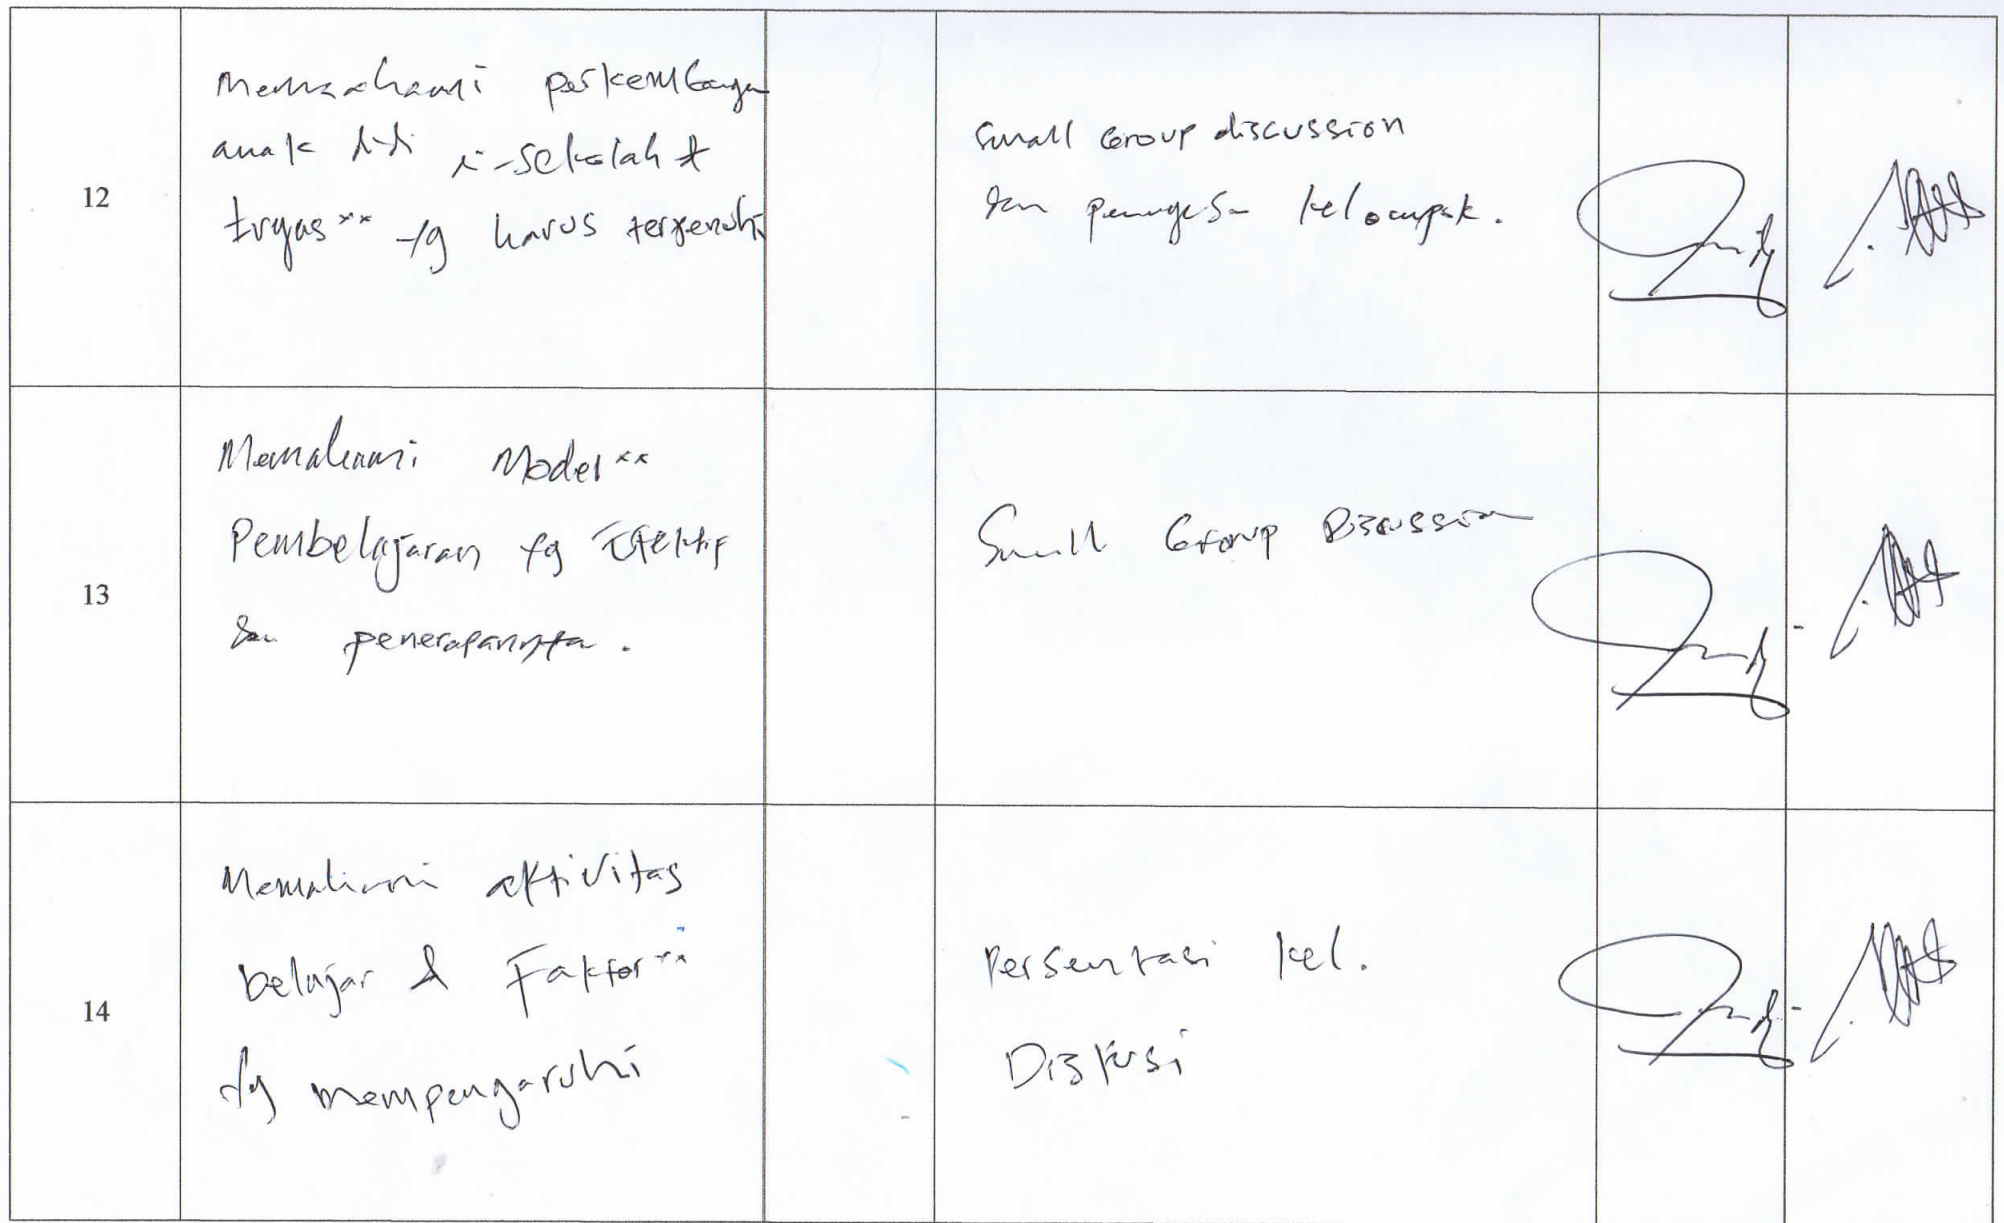 12
Memahami perkembangan
anak di sekolah &
tugas** yg harus terpenuhi
Small Group discussion
dan penugasan kelompok.
13
Memahami Model**
Pembelajaran yg Efektif
dan penerapannya.
Small Group Discussion
14
Memahami aktivitas
belajar & Faktor**
yg mempengaruhi
Persentasi kel.
Diskusi